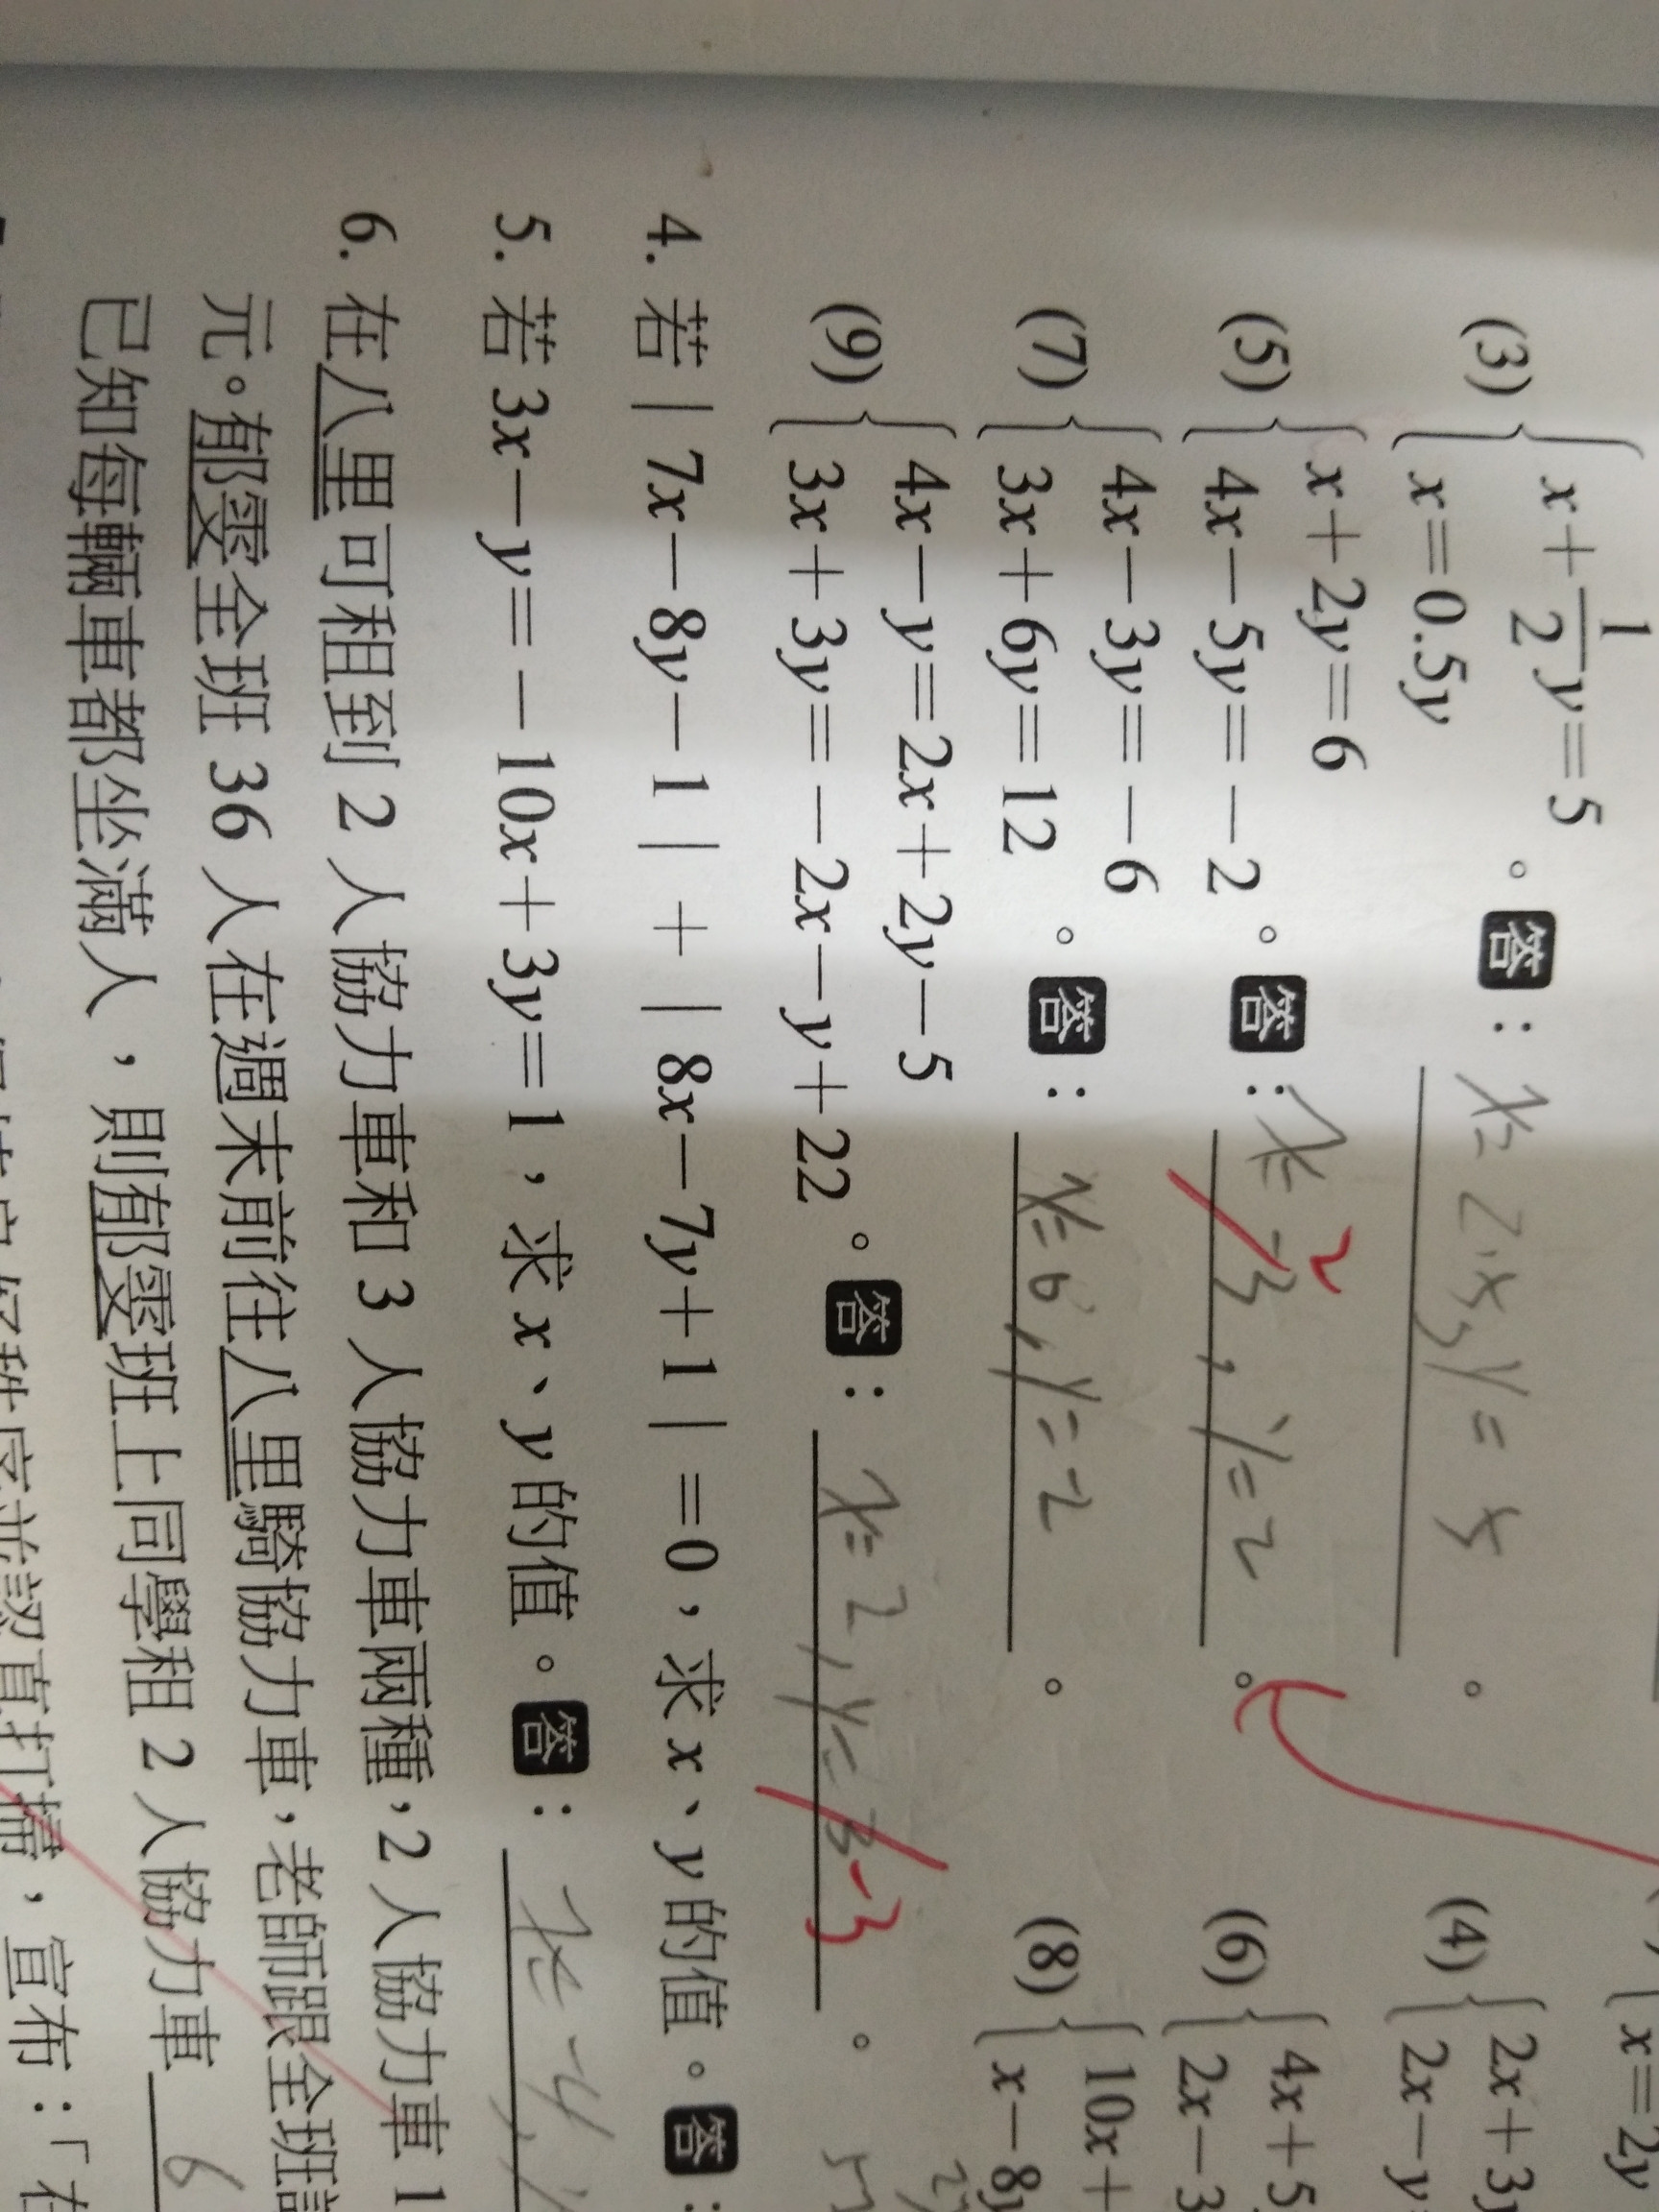 x=2y
(3) { x+1/2y=5
x=0.5y 。答：x=2.5,y=5 。
(4) { 2x+3y
2x-y
(5) { x+2y=6
4x-5y=-2 。答：x=-3,y=2 。
2
(6) { 4x+5
2x-3
(7) { 4x-3y=-6
3x+6y=12 。答：x=6,y=-2 。
(8) { 10x+
x-8y
(9) { 4x-y=2x+2y-5
3x+3y=-2x-y+22 。答：x=2,y=3 。
-3
4. 若|7x-8y-1|+|8x-7y+1|=0，求x、y的值。答：
5. 若3x-y=-10x+3y=1，求x、y的值。答：x=-4,y
6. 在八里可租到2人協力車和3人協力車兩種，2人協力車1
元。郁雯全班36人在週末前往八里騎協力車，老師跟全班
已知每輛車都坐滿人，則郁雯班上同學租2人協力車 6
認真打掃，宣布：「在